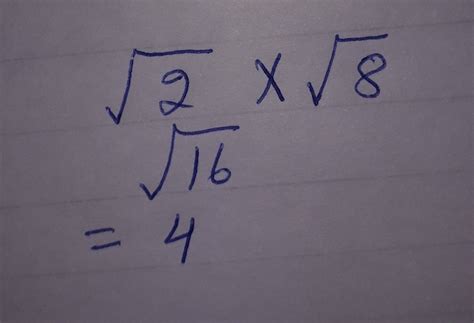 √2 x √8
√16
= 4